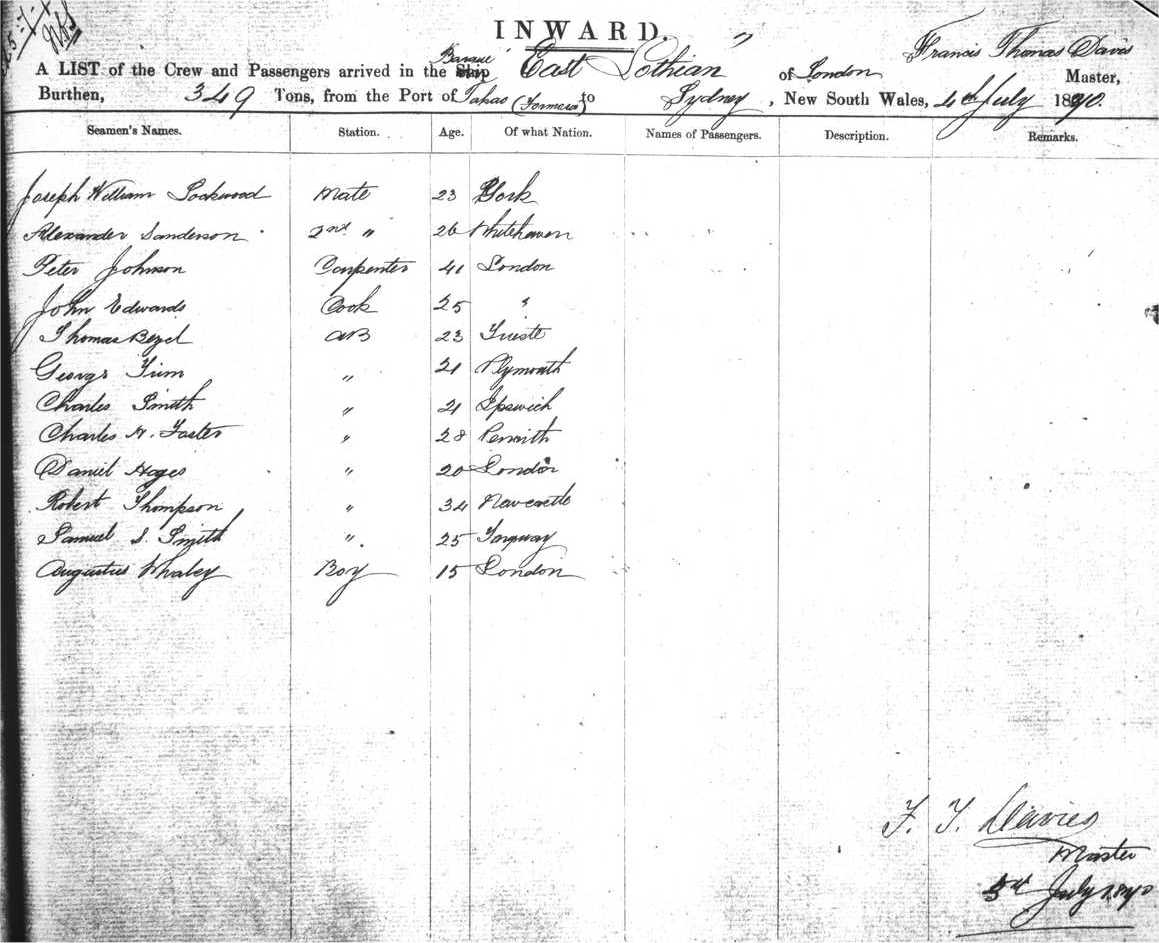 INWARD.
A LIST of the Crew and Passengers arrived in the Barque Ship East Lothian of London Francis Thomas Davis Master,
Burthen, 349 Tons, from the Port of (Formosa) to Sydney, New South Wales, 4th July 1870.
Seamen's Names. Station. Age. Of what Nation. Names of Passengers. Description. Remarks.
Joseph William Lockwood Mate 23 York
Alexander Sanderson 2nd " 26 Whitehaven
Peter Johnson Carpenter 41 London
John Edwards Cook 25 "
Thomas AB 23 Trieste
George 21 Plymouth
Charles Smith " 21 Ipswich
Charles H. Foster " 28 Penrith
Daniel " 20 London
Robert Thompson " 34 Newcastle
Samuel S. Smith " 25
Augustus Whaley Boy 15 London
F. T. Davies
Master
July 1870